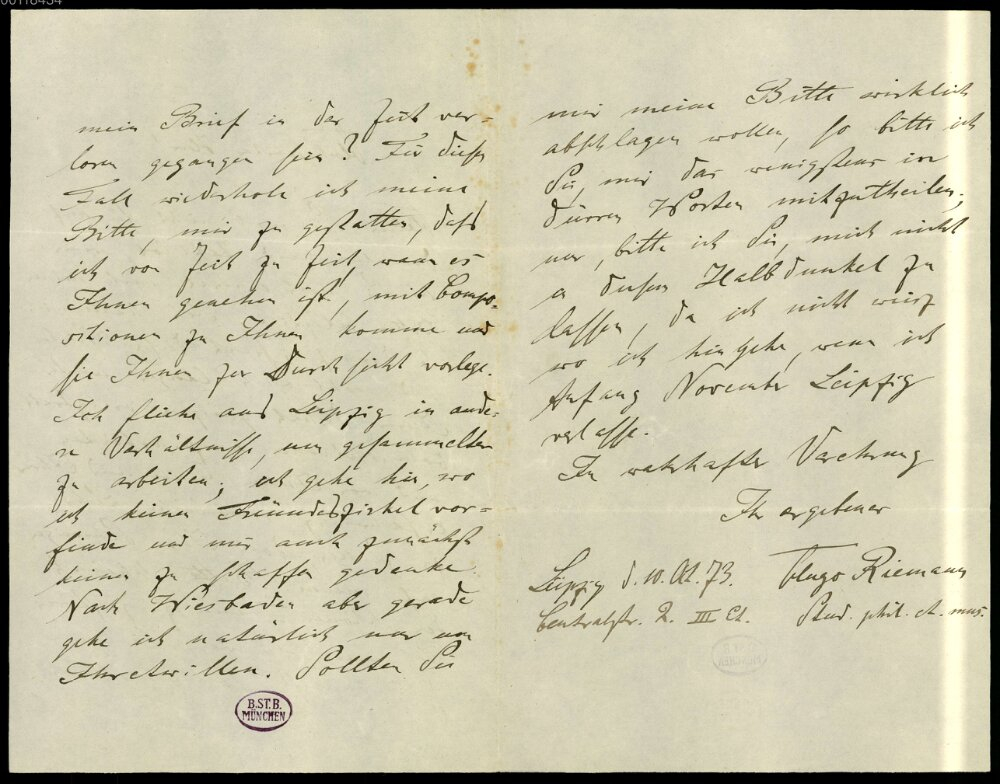 mein Brief in der Zeit ver-
loren gegangen sein? Für diesen
Fall wiederhole ich meine
Bitte, mir zu gestatten, daß
ich von Zeit zu Zeit, wann es
Ihnen genehm ist, mit Compo-
sitionen zu Ihnen komme und
sie Ihnen zur Durchsicht vorlege.
Ich fliehe aus Leipzig in ande-
re Verhältnisse, um gesammelter
zu arbeiten; ich gehe hin, wo
ich keinen Freundeszirkel vor-
finde und mir auch zunächst
keinen zu schaffen gedenke.
Nach Wiesbaden aber gerade
gehe ich natürlich nur um
Ihretwillen. Sollten Sie
B.ST.B.
MÜNCHEN
mir meine Bitte wirklich
abschlagen wollen, so bitte ich
Sie, mir das wenigstens in
dürren Worten mitzutheilen;
nur, bitte ich Sie, mich nicht
in diesem Halbdunkel zu
lassen, da ich nicht weiß
wo ich hingehe, wenn ich
Anfang November Leipzig
verlasse.
In wahrhafter Verehrung
Ihr ergebener
Hugo Riemann
Leipzig d. 10. Okt. 73.
Stud. phil. et. mus.
Centralstr. 2. III Et.